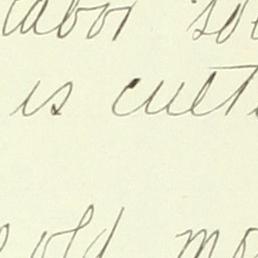 labor so
is cult
old mo